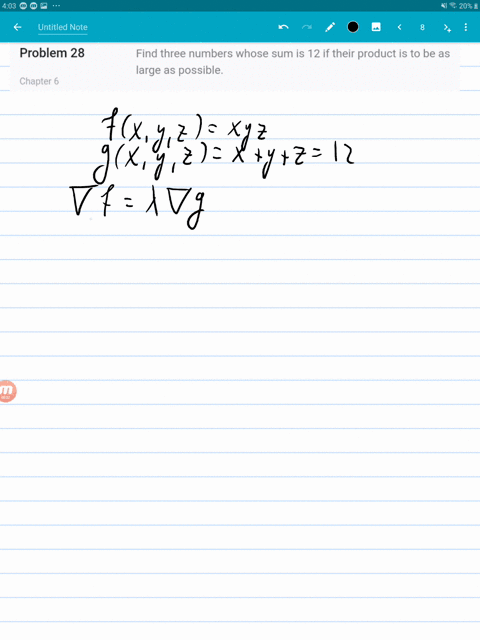 4:03 20%
Untitled Note 8
Problem 28
Find three numbers whose sum is 12 if their product is to be as
large as possible.
Chapter 6
f(x,y,z)=xyz
g(x,y,z)=x+y+z=12
∇f=λ∇g
m